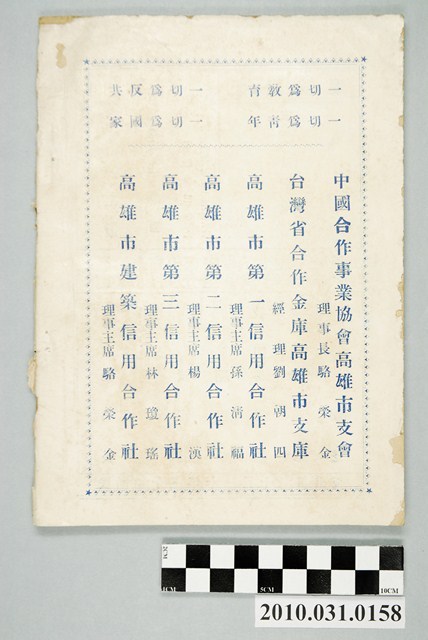 一切為教育
一切為青年
一切為反共
一切為國家
中國合作事業協會高雄市支會
理事長駱榮金
台灣省合作金庫高雄市支庫
經理劉朝四
高雄市第一信用合作社
理事主席孫清福
高雄市第二信用合作社
理事主席楊漢
高雄市第三信用合作社
理事主席林瓊瑤
高雄市建築信用合作社
理事主席駱榮金
1CM
5CM
10CM
2010.031.0158